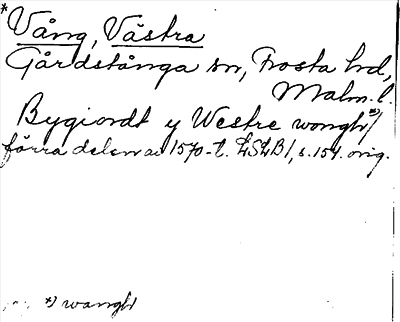 * Vång, Västra
Gårdstånga sn, Frosta hd,
Malm. l.
Bygiordt y Westre wongh *)/
förra delen av 1570-t. LSLB1, s. 154. orig.
*) wangh